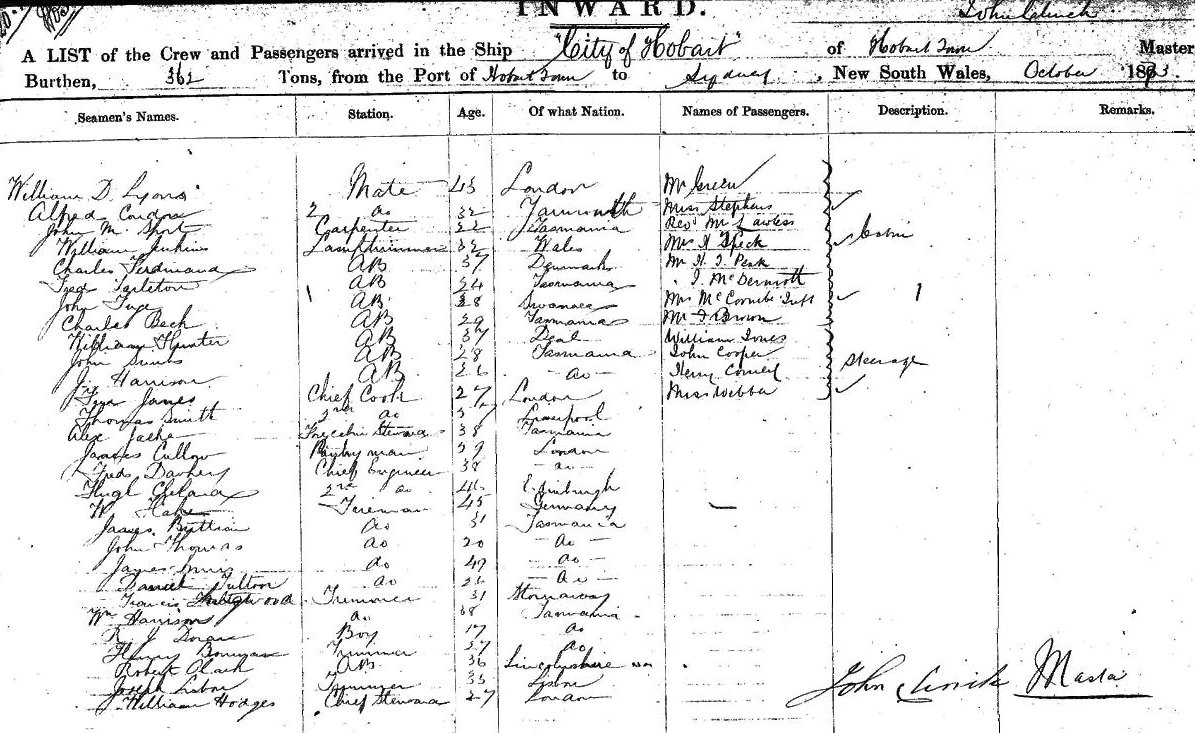 INWARD.
John Clinch
A LIST of the Crew and Passengers arrived in the Ship "City of Hobart" of Hobart Town Master
Burthen, 362 Tons, from the Port of Hobart Town to Sydney, New South Wales, October 1873.
Seamen's Names. Station. Age. Of what Nation. Names of Passengers. Description. Remarks.
William D. Lyons Mate 45 London Mr Green
Alfred 2 do 32 Miss Stephens
John M. Short Carpenter 22 Tasmania Revd Mr Lawless
William Jenkins Lamptrimmer 32 Wales Mrs H Speck Cabin
Charles Ferdinand AB 37 Denmark Mr H. J. Peak
Fred Tarleton AB 24 Tasmania " J. McDermott
John AB 28 Swansea Mrs McCombe Inft
Charles Beck AB 29 Tasmania Mr J Brown
William Hunter AB 37 Deal William Jones
John AB 28 Tasmania John Cooper Steerage
J. Harrison AB 26 do Henry
James Chief Cook 27 London Miss Webber
Thomas Smith 2nd do Liverpool
Alex Steward 38 Tasmania
James Pantryman 59 London
Fredk Chief Engineer 38 do
Hugh 2nd do 46 Edinburgh
W Fireman 45 Germany
James do 31 Tasmania
John Thomas do 20 do
James do 49 do
Daniel Fulton do 26 do
Francis Trimmer 31 Stornaway
Wm Harrison do 38 Tasmania
R. J. Boy 17 do
Henry Trimmer 27 do
Robert Clark AB 36 Lincolnshire
Joseph Lisbon Trimmer 35 Lisbon
William Hodges Chief Steward 27 London
John Clinch Master